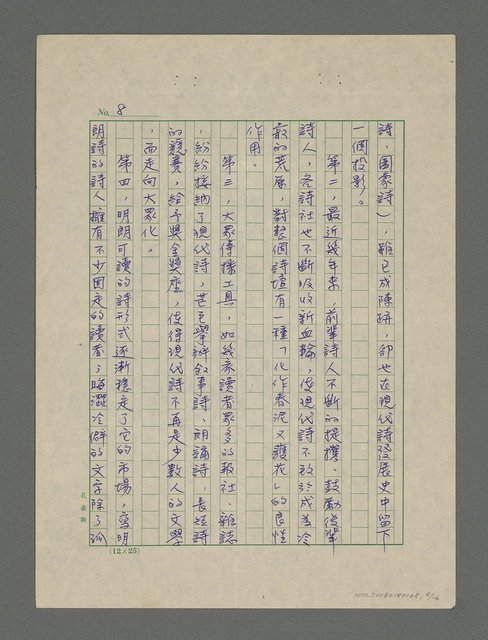 No. 8
詩、圖象詩），雖已成陳跡，卻也在現代詩發展史中留下
一個投影。
第二，最近幾年來，前輩詩人不斷的提攜、鼓勵後輩
詩人，各詩社也不斷吸收新血輪，使現代詩不致於成為冷
寂的荒原，對整個詩壇有一種「化作春泥又護花」的良性
作用。
第三，大眾傳播工具，如幾家讀者眾多的報社、雜誌
，紛紛接納了現代詩，甚至舉辦敘事詩、朗誦詩、長短詩
的競賽，給予獎金獎座，使得現代詩不再是少數人的文學
，而走向大眾化。
第四，明朗可讀的詩形式逐漸穩定了它的市場，寫明
朗詩的詩人擁有不少固定的讀者；晦澀冷僻的文字除了孤
孔雀牌
(12×25)